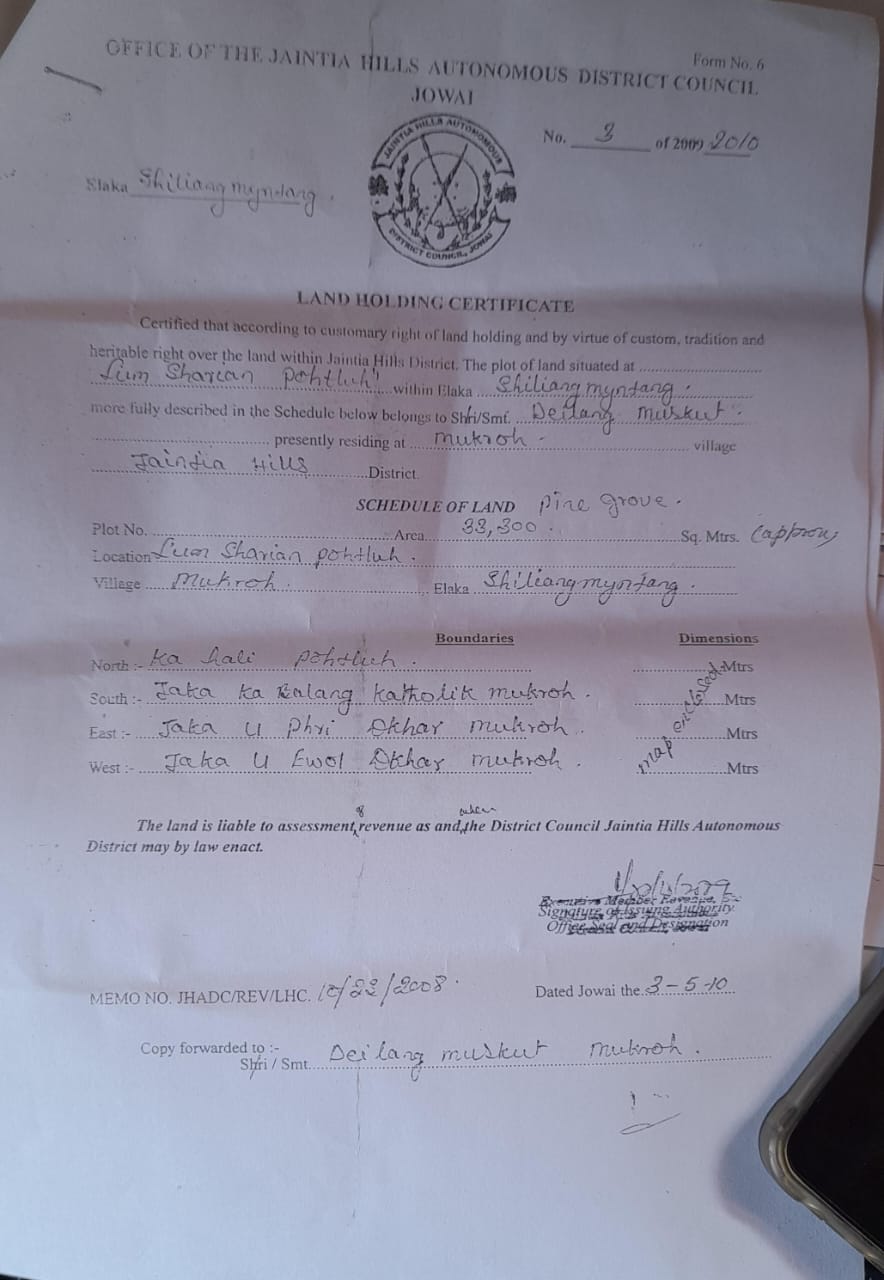 Form No. 6
OFFICE OF THE JAINTIA HILLS AUTONOMOUS DISTRICT COUNCIL
JOWAI
No. 3 of 2009 2010
Elaka Shiliangmyntang.
JAINTIA HILLS AUTONOMOUS
DISTRICT COUNCIL, JOWAI
LAND HOLDING CERTIFICATE
Certified that according to customary right of land holding and by virtue of custom, tradition and
heritable right over the land within Jaintia Hills District. The plot of land situated at
Lum Sharian pohtluh within Elaka Shiliangmyntang.
more fully described in the Schedule below belongs to Shri/Smt. Deilang muskut.
presently residing at mukroh village
Jaintia Hills District.
SCHEDULE OF LAND pine grove.
Plot No. Area 33,300. Sq. Mtrs. (approx)
Location Lum Sharian pohtluh.
Village Mukroh. Elaka Shiliangmyntang.
Boundaries Dimensions
North :- Ka hali pohtluh. Mtrs
South :- Jaka ka Balang Katholik mukroh. Mtrs
East :- Jaka U phri Dkhar mukroh. Mtrs
West :- Jaka U Ewol Dkhar mukroh. Mtrs
map enclosed
The land is liable to assessment of revenue as and when the District Council Jaintia Hills Autonomous
District may by law enact.
Executive Member Revenue,
Signature of Issuing Authority
Office Seal and Designation
MEMO NO. JHADC/REV/LHC. 10/22/2008. Dated Jowai the 3-5-10
Copy forwarded to :-
Shri / Smt. Deilang muskut mukroh.